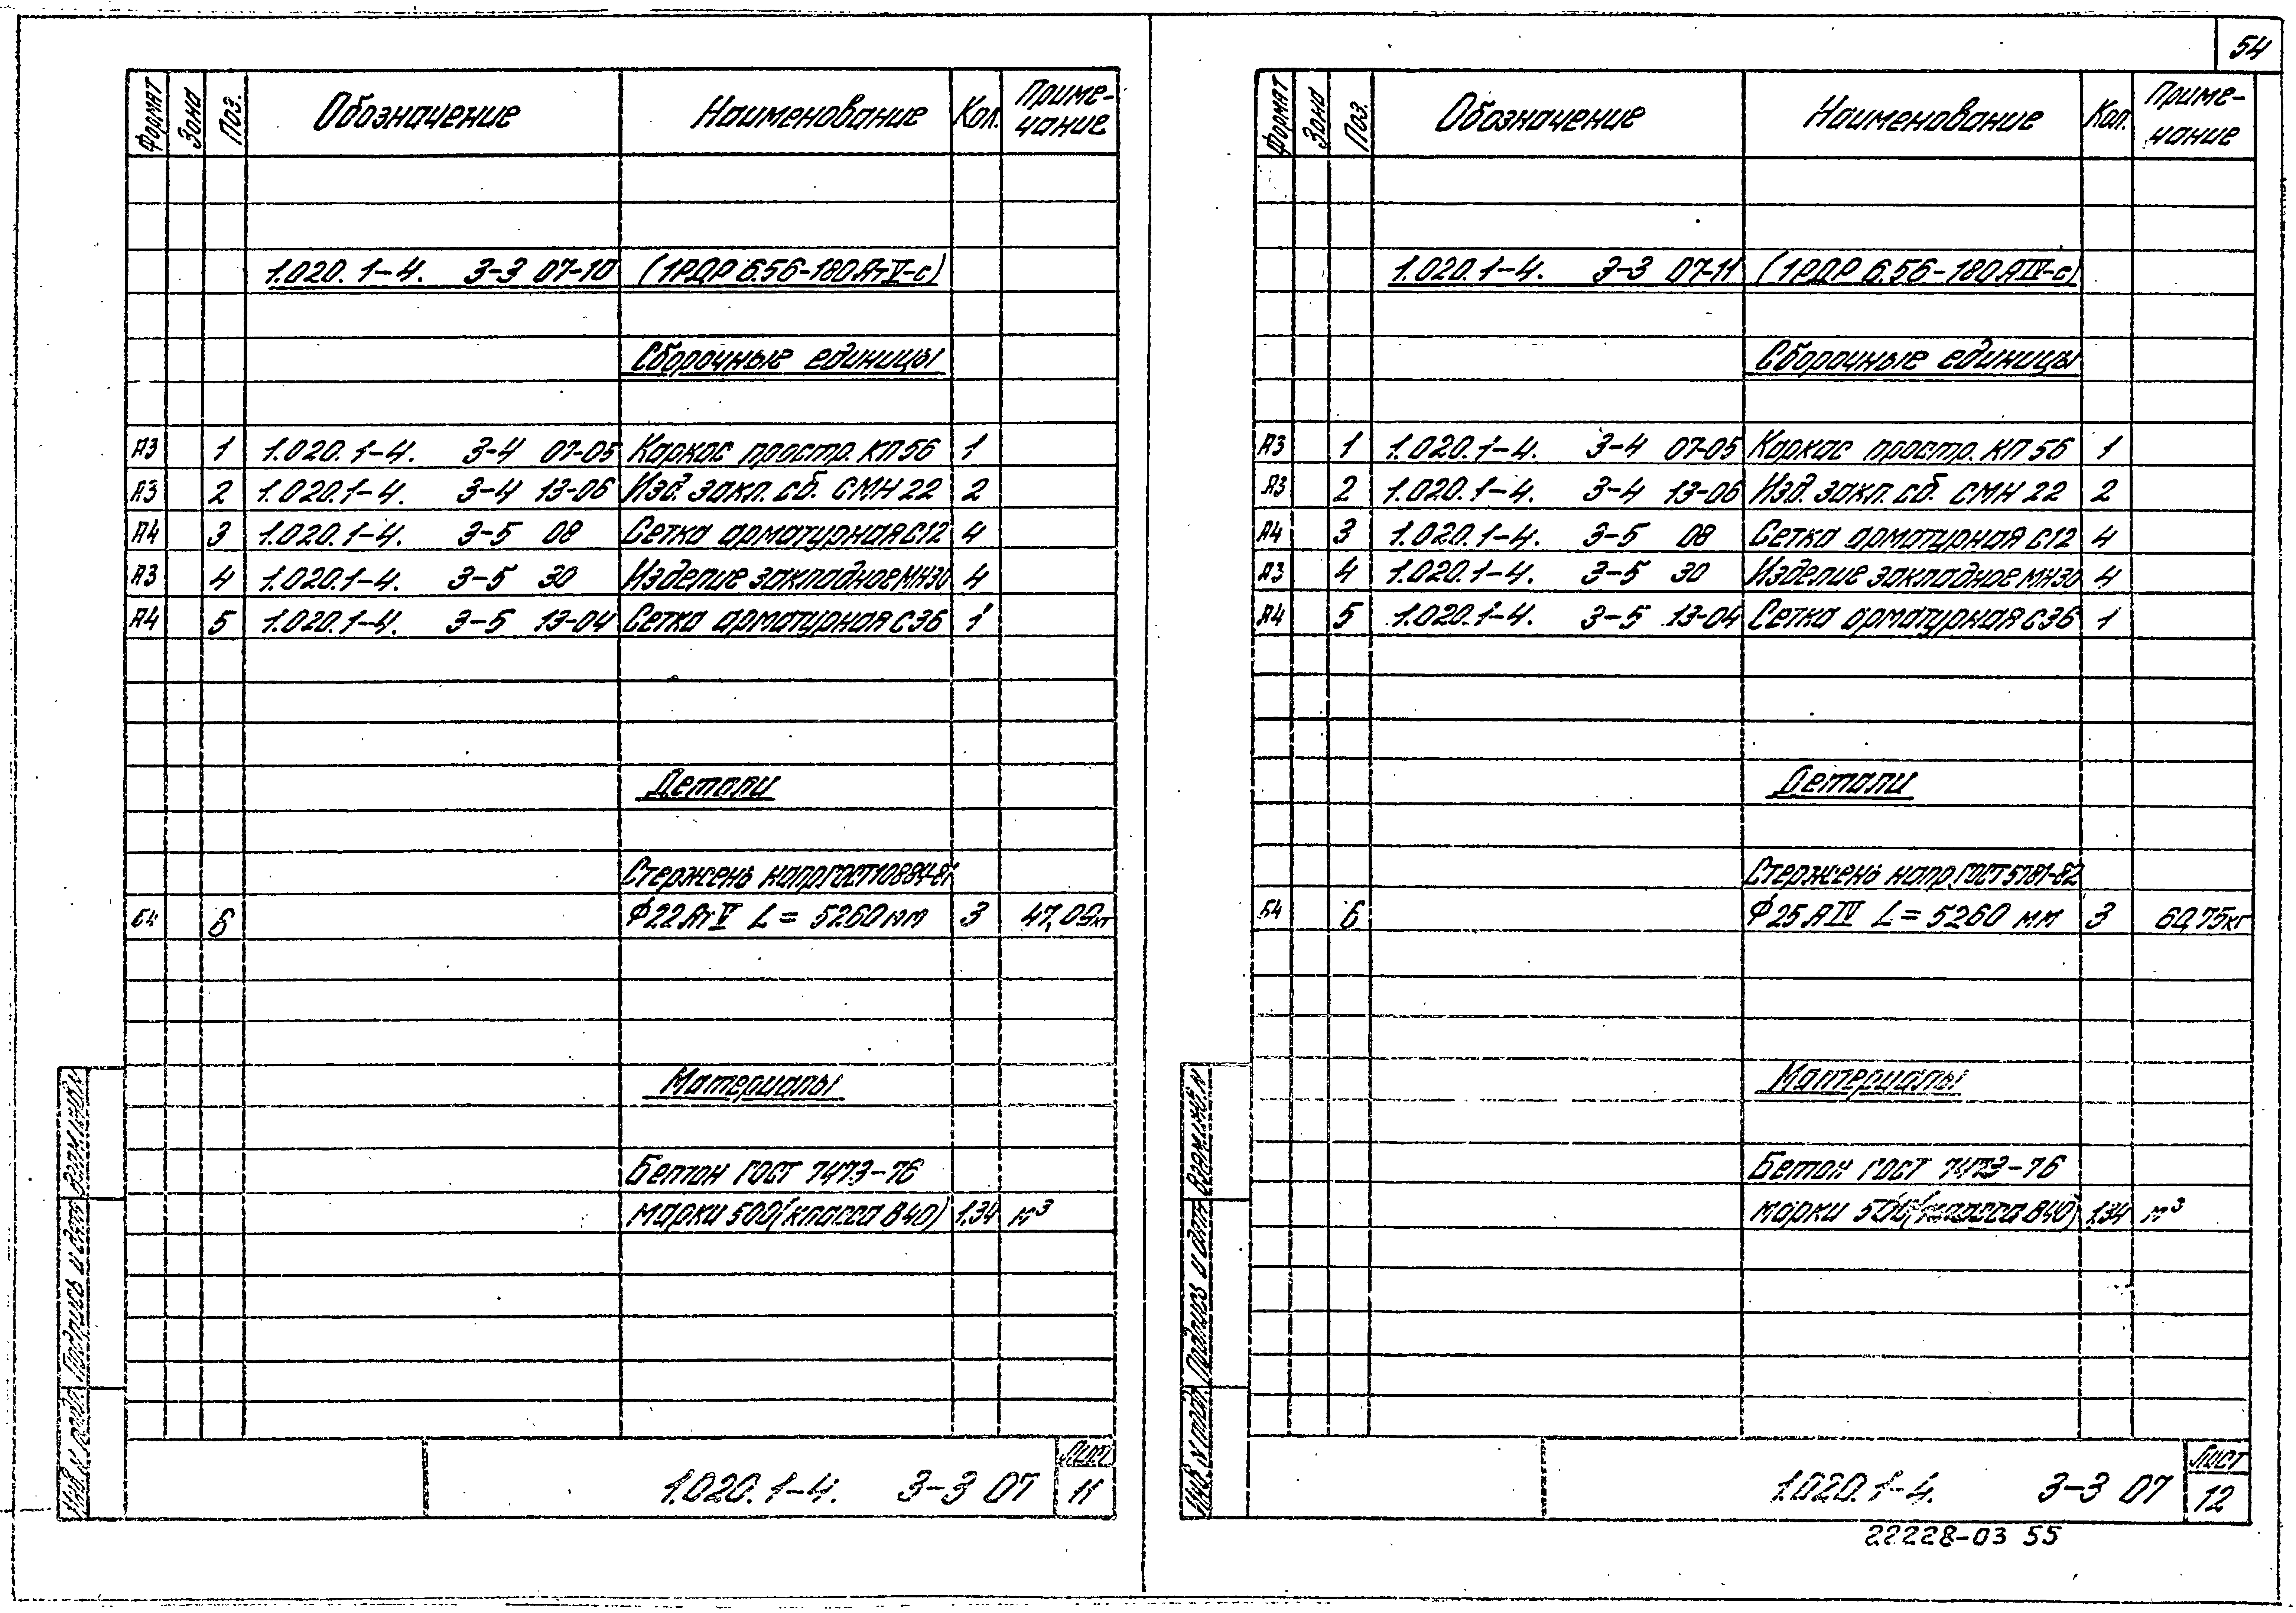 54
Формат Зона Поз. Обозначение Наименование Кол. Приме-
чание
1.020.1-4. 3-3 07-10 (1РДР 6.56-180АтV-с)
Сборочные единицы
А3 1 1.020.1-4. 3-4 07-05 Каркас простр. КП56 1
А3 2 1.020.1-4. 3-4 13-06 Изд. закл. сб. СМН 22 2
А4 3 1.020.1-4. 3-5 08 Сетка арматурная С12 4
А3 4 1.020.1-4. 3-5 30 Изделие закладное МН30 4
А4 5 1.020.1-4. 3-5 13-04 Сетка арматурная С36 1
Детали
Стержень напр ГОСТ10884-81
Б4 6 Ф22АтV L = 5260 мм 3 47,09кг
Материалы
Бетон ГОСТ 7473-76
марки 500(класса В40) 1.34 м³
Инв. N подл. Подпись и дата Взам.инв.N
1.020.1-4. 3-3 07
Лист
11
Формат Зона Поз. Обозначение Наименование Кол. Приме-
чание
1.020.1-4. 3-3 07-11 (1РДР 6.56-180АIV-с)
Сборочные единицы
А3 1 1.020.1-4. 3-4 07-05 Каркас простр. КП 56 1
А3 2 1.020.1-4. 3-4 13-06 Изд. закл. сб. СМН 22 2
А4 3 1.020.1-4. 3-5 08 Сетка арматурная С12 4
А3 4 1.020.1-4. 3-5 30 Изделие закладное МН30 4
А4 5 1.020.1-4. 3-5 13-04 Сетка арматурная С36 1
Детали
Стержень напр. ГОСТ5781-82
Б4 6 Ф25АIV L = 5260 мм 3 60,75кг
Материалы
Бетон ГОСТ 7473-76
марки 500(класса В40) 1.34 м³
Инв. N подл. Подпись и дата Взам.инв.N
1.020.1-4. 3-3 07
Лист
12
22228-03 55